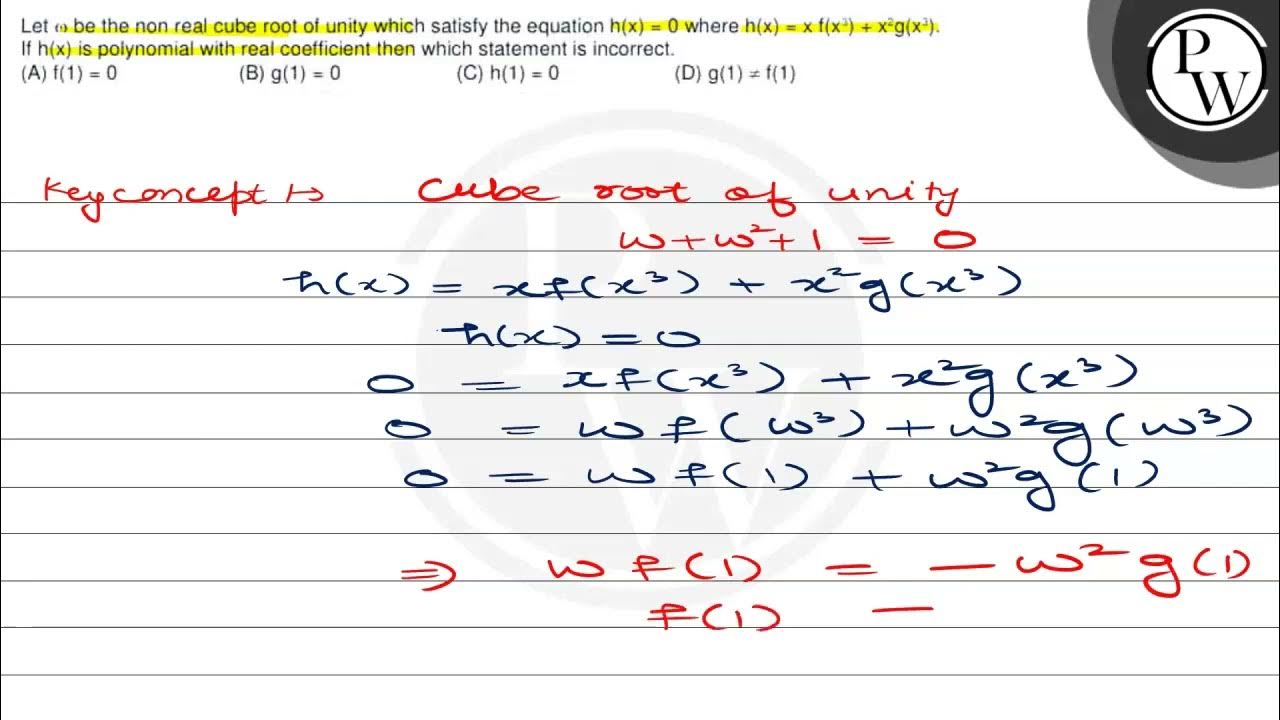 Let ω be the non real cube root of unity which satisfy the equation h(x) = 0 where h(x) = x f(x³) + x²g(x³).
If h(x) is polynomial with real coefficient then which statement is incorrect.
(A) f(1) = 0 (B) g(1) = 0 (C) h(1) = 0 (D) g(1) ≠ f(1)
PW
Key concept :→ Cube root of unity
ω + ω² + 1 = 0
h(x) = xf(x³) + x²g(x³)
h(x) = 0
0 = xf(x³) + x²g(x³)
0 = ωf(ω³) + ω²g(ω³)
0 = ωf(1) + ω²g(1)
⇒ ωf(1) = −ω²g(1)
f(1) −